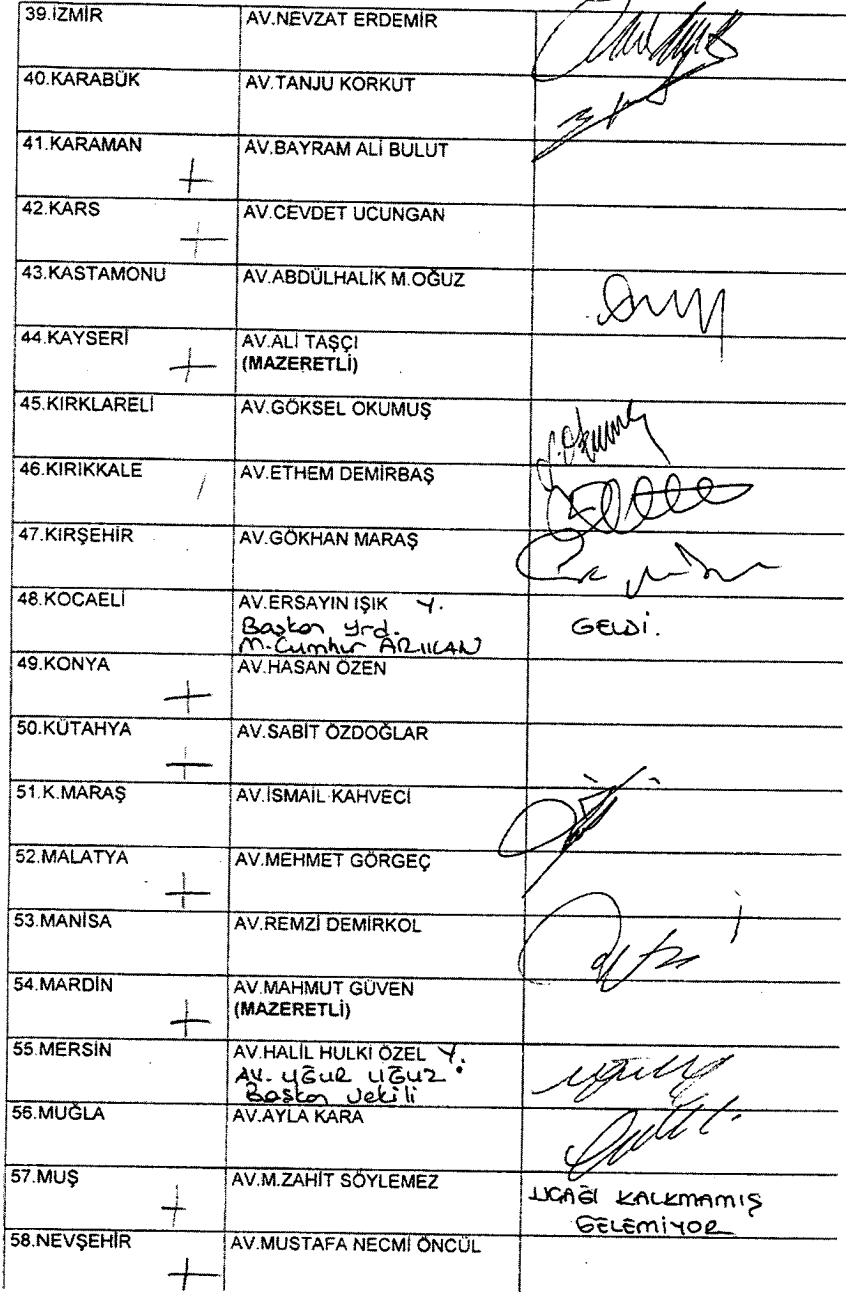 39.İZMİR AV.NEVZAT ERDEMİR
40.KARABÜK AV.TANJU KORKUT
41.KARAMAN AV.BAYRAM ALİ BULUT
42.KARS AV.CEVDET UCUNGAN
43.KASTAMONU AV.ABDÜLHALİK M.OĞUZ
44.KAYSERİ AV.ALİ TAŞÇI
(MAZERETLİ)
45.KIRKLARELİ AV.GÖKSEL OKUMUŞ
46.KIRIKKALE AV.ETHEM DEMİRBAŞ
47.KIRŞEHİR AV.GÖKHAN MARAŞ
48.KOCAELİ AV.ERSAYIN IŞIK Y.
Başkan Yrd. GELDİ.
M.Cumhur ARIKAN
49.KONYA AV.HASAN ÖZEN
50.KÜTAHYA AV.SABİT ÖZDOĞLAR
51.K.MARAŞ AV.İSMAİL KAHVECİ
52.MALATYA AV.MEHMET GÖRGEÇ
53.MANİSA AV.REMZİ DEMİRKOL
54.MARDİN AV.MAHMUT GÜVEN
(MAZERETLİ)
55.MERSİN AV.HALİL HULKİ ÖZEL Y.
AV. UĞUR UĞUZ
Başkan Vekili
56.MUĞLA AV.AYLA KARA
57.MUŞ AV.M.ZAHİT SÖYLEMEZ
UÇAĞI KALKMAMIŞ
GELEMİYOR
58.NEVŞEHİR AV.MUSTAFA NECMİ ÖNCÜL